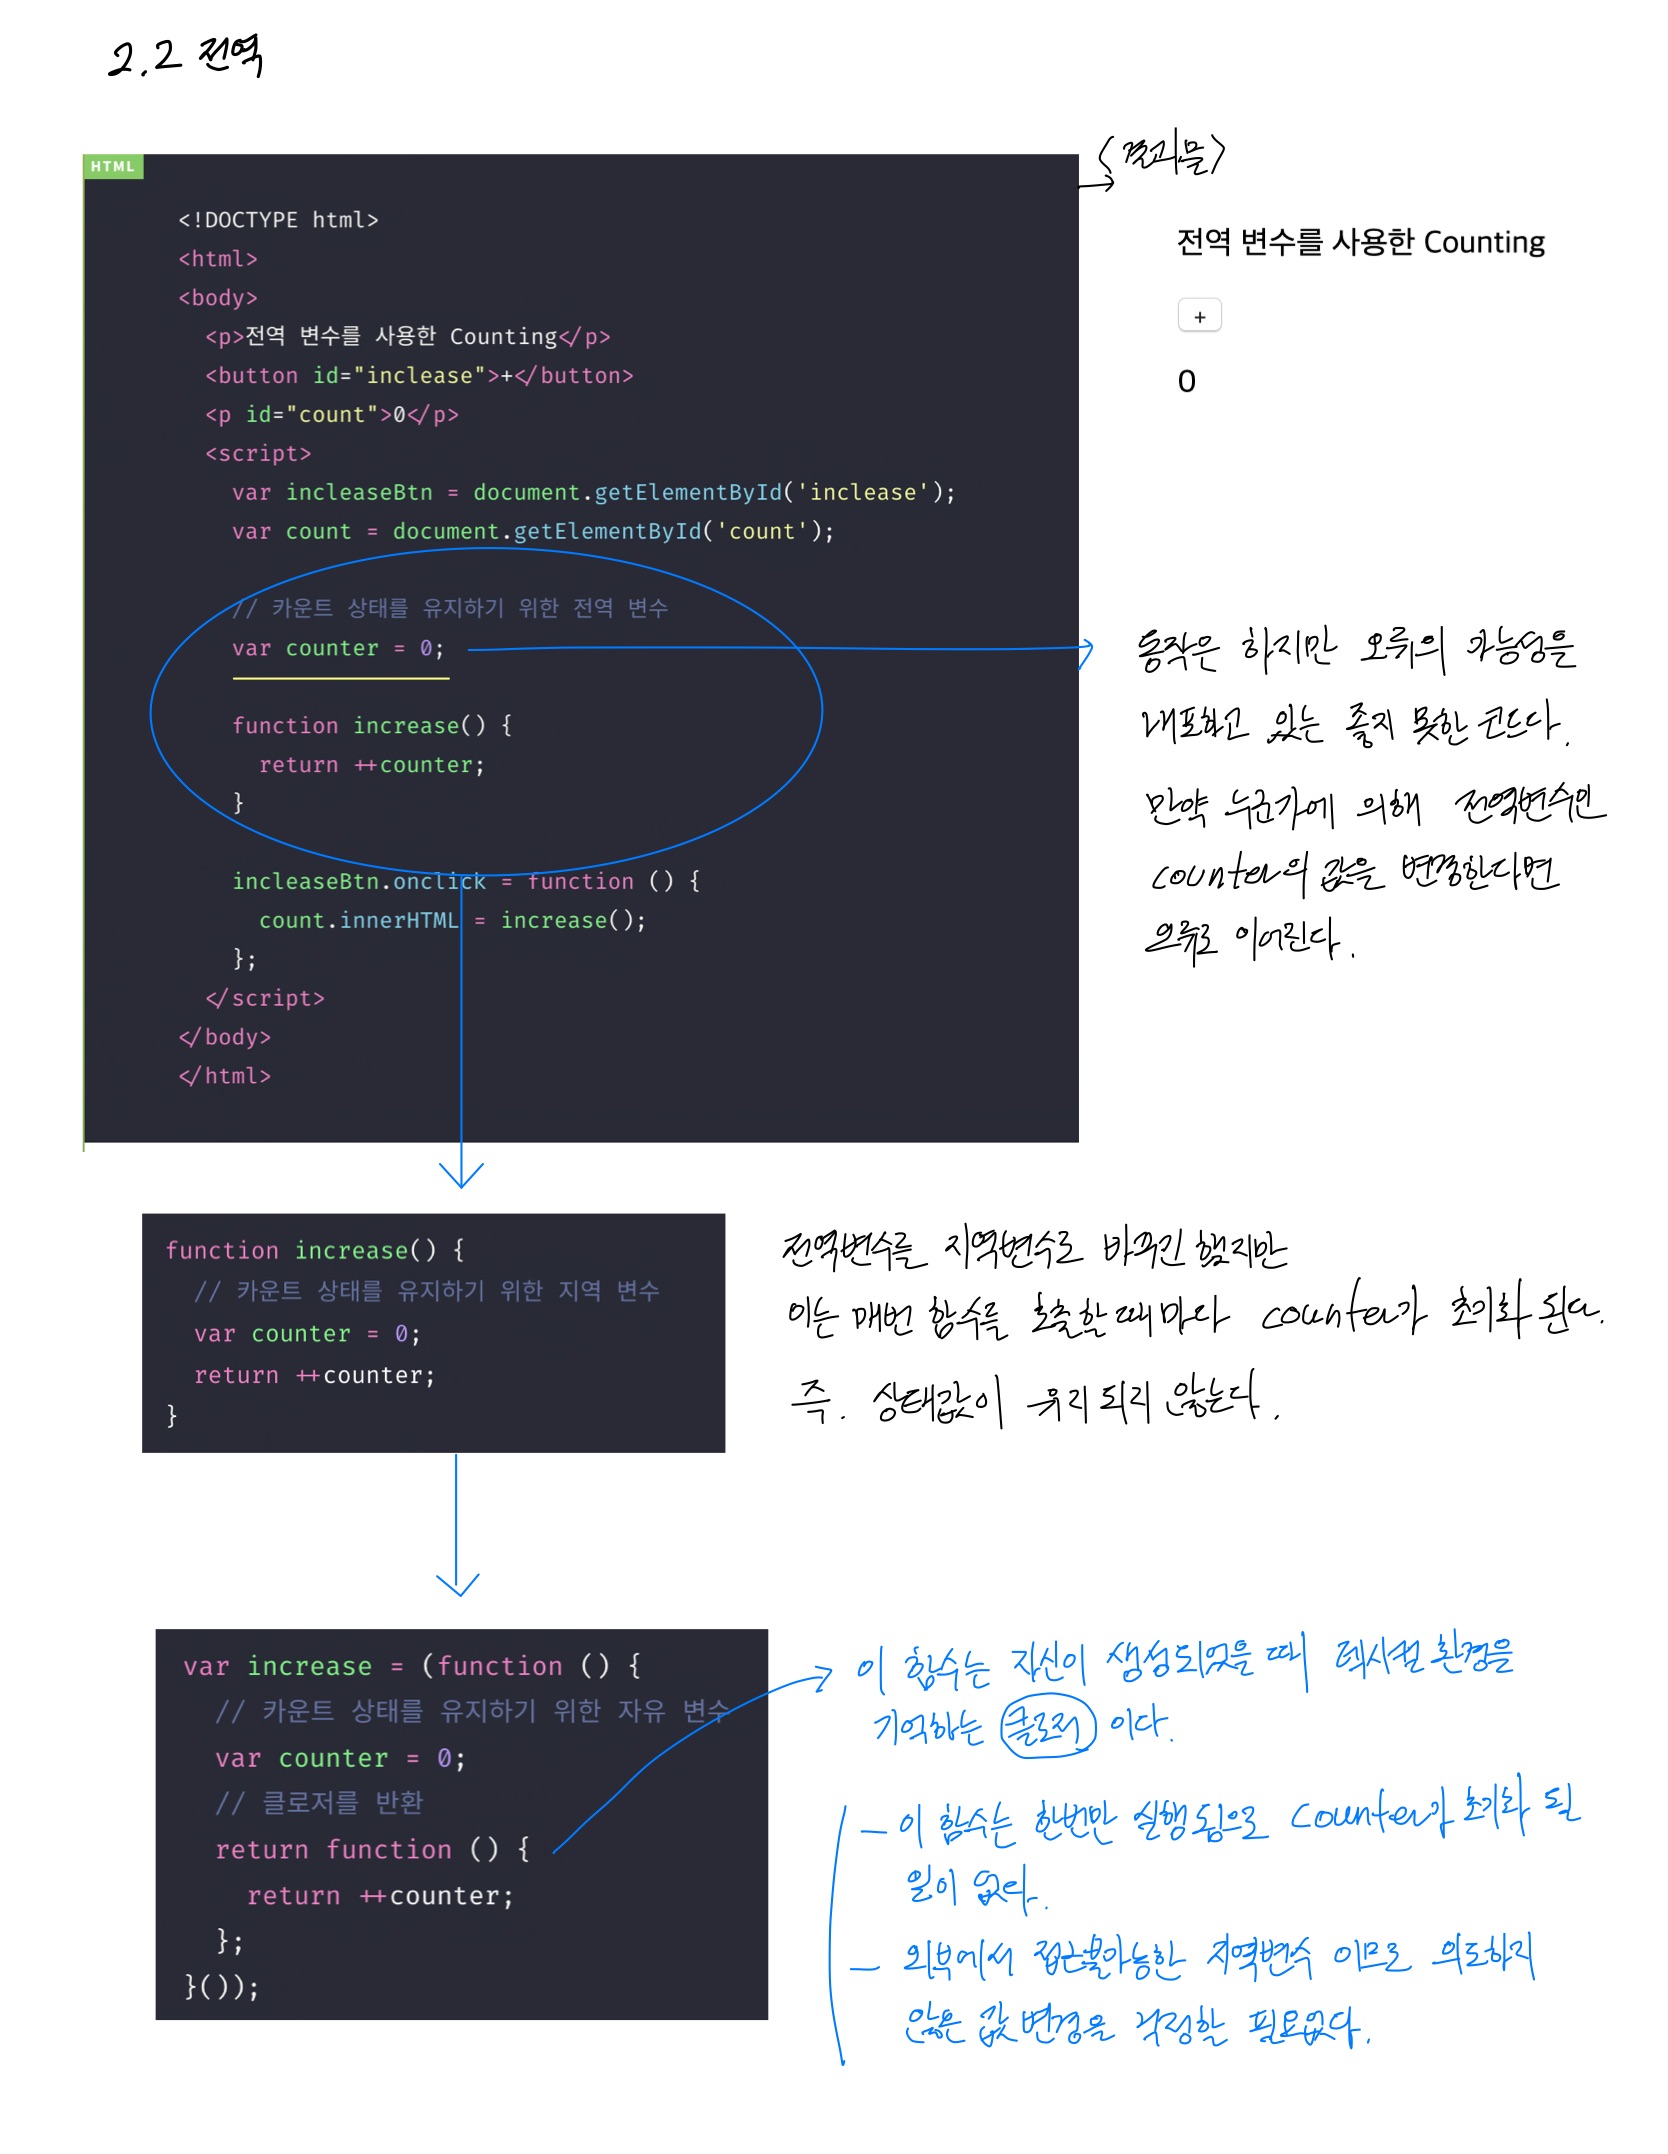 2.2 전역
HTML
<!DOCTYPE html>
<html>
<body>
<p>전역 변수를 사용한 Counting</p>
<button id="inclease">+</button>
<p id="count">0</p>
<script>
var incleaseBtn = document.getElementById('inclease');
var count = document.getElementById('count');
// 카운트 상태를 유지하기 위한 전역 변수
var counter = 0;
function increase() {
return ++counter;
}
incleaseBtn.onclick = function () {
count.innerHTML = increase();
};
</script>
</body>
</html>
<결과물>
전역 변수를 사용한 Counting
+
0
동작은 하지만 오류의 가능성을
내포하고 있는 좋지 못한 코드다.
만약 누군가에 의해 전역변수인
counter의 값을 변경한다면
오류로 이어진다.
function increase() {
// 카운트 상태를 유지하기 위한 지역 변수
var counter = 0;
return ++counter;
}
전역변수를 지역변수로 바꾸긴 했지만
이는 매번 함수를 호출할때마다 counter가 초기화 된다.
즉. 상태값이 유지되지 않는다.
var increase = (function () {
// 카운트 상태를 유지하기 위한 자유 변수
var counter = 0;
// 클로저를 반환
return function () {
return ++counter;
};
}());
이 함수는 자신이 생성되었을 때 렉시컬 환경을
기억하는 클로저 이다.
- 이 함수는 한번만 실행됨으로 counter가 초기화 될
일이 없다.
- 외부에서 접근불가능한 지역변수 이므로 의도하지
않은 값 변경을 걱정할 필요없다.